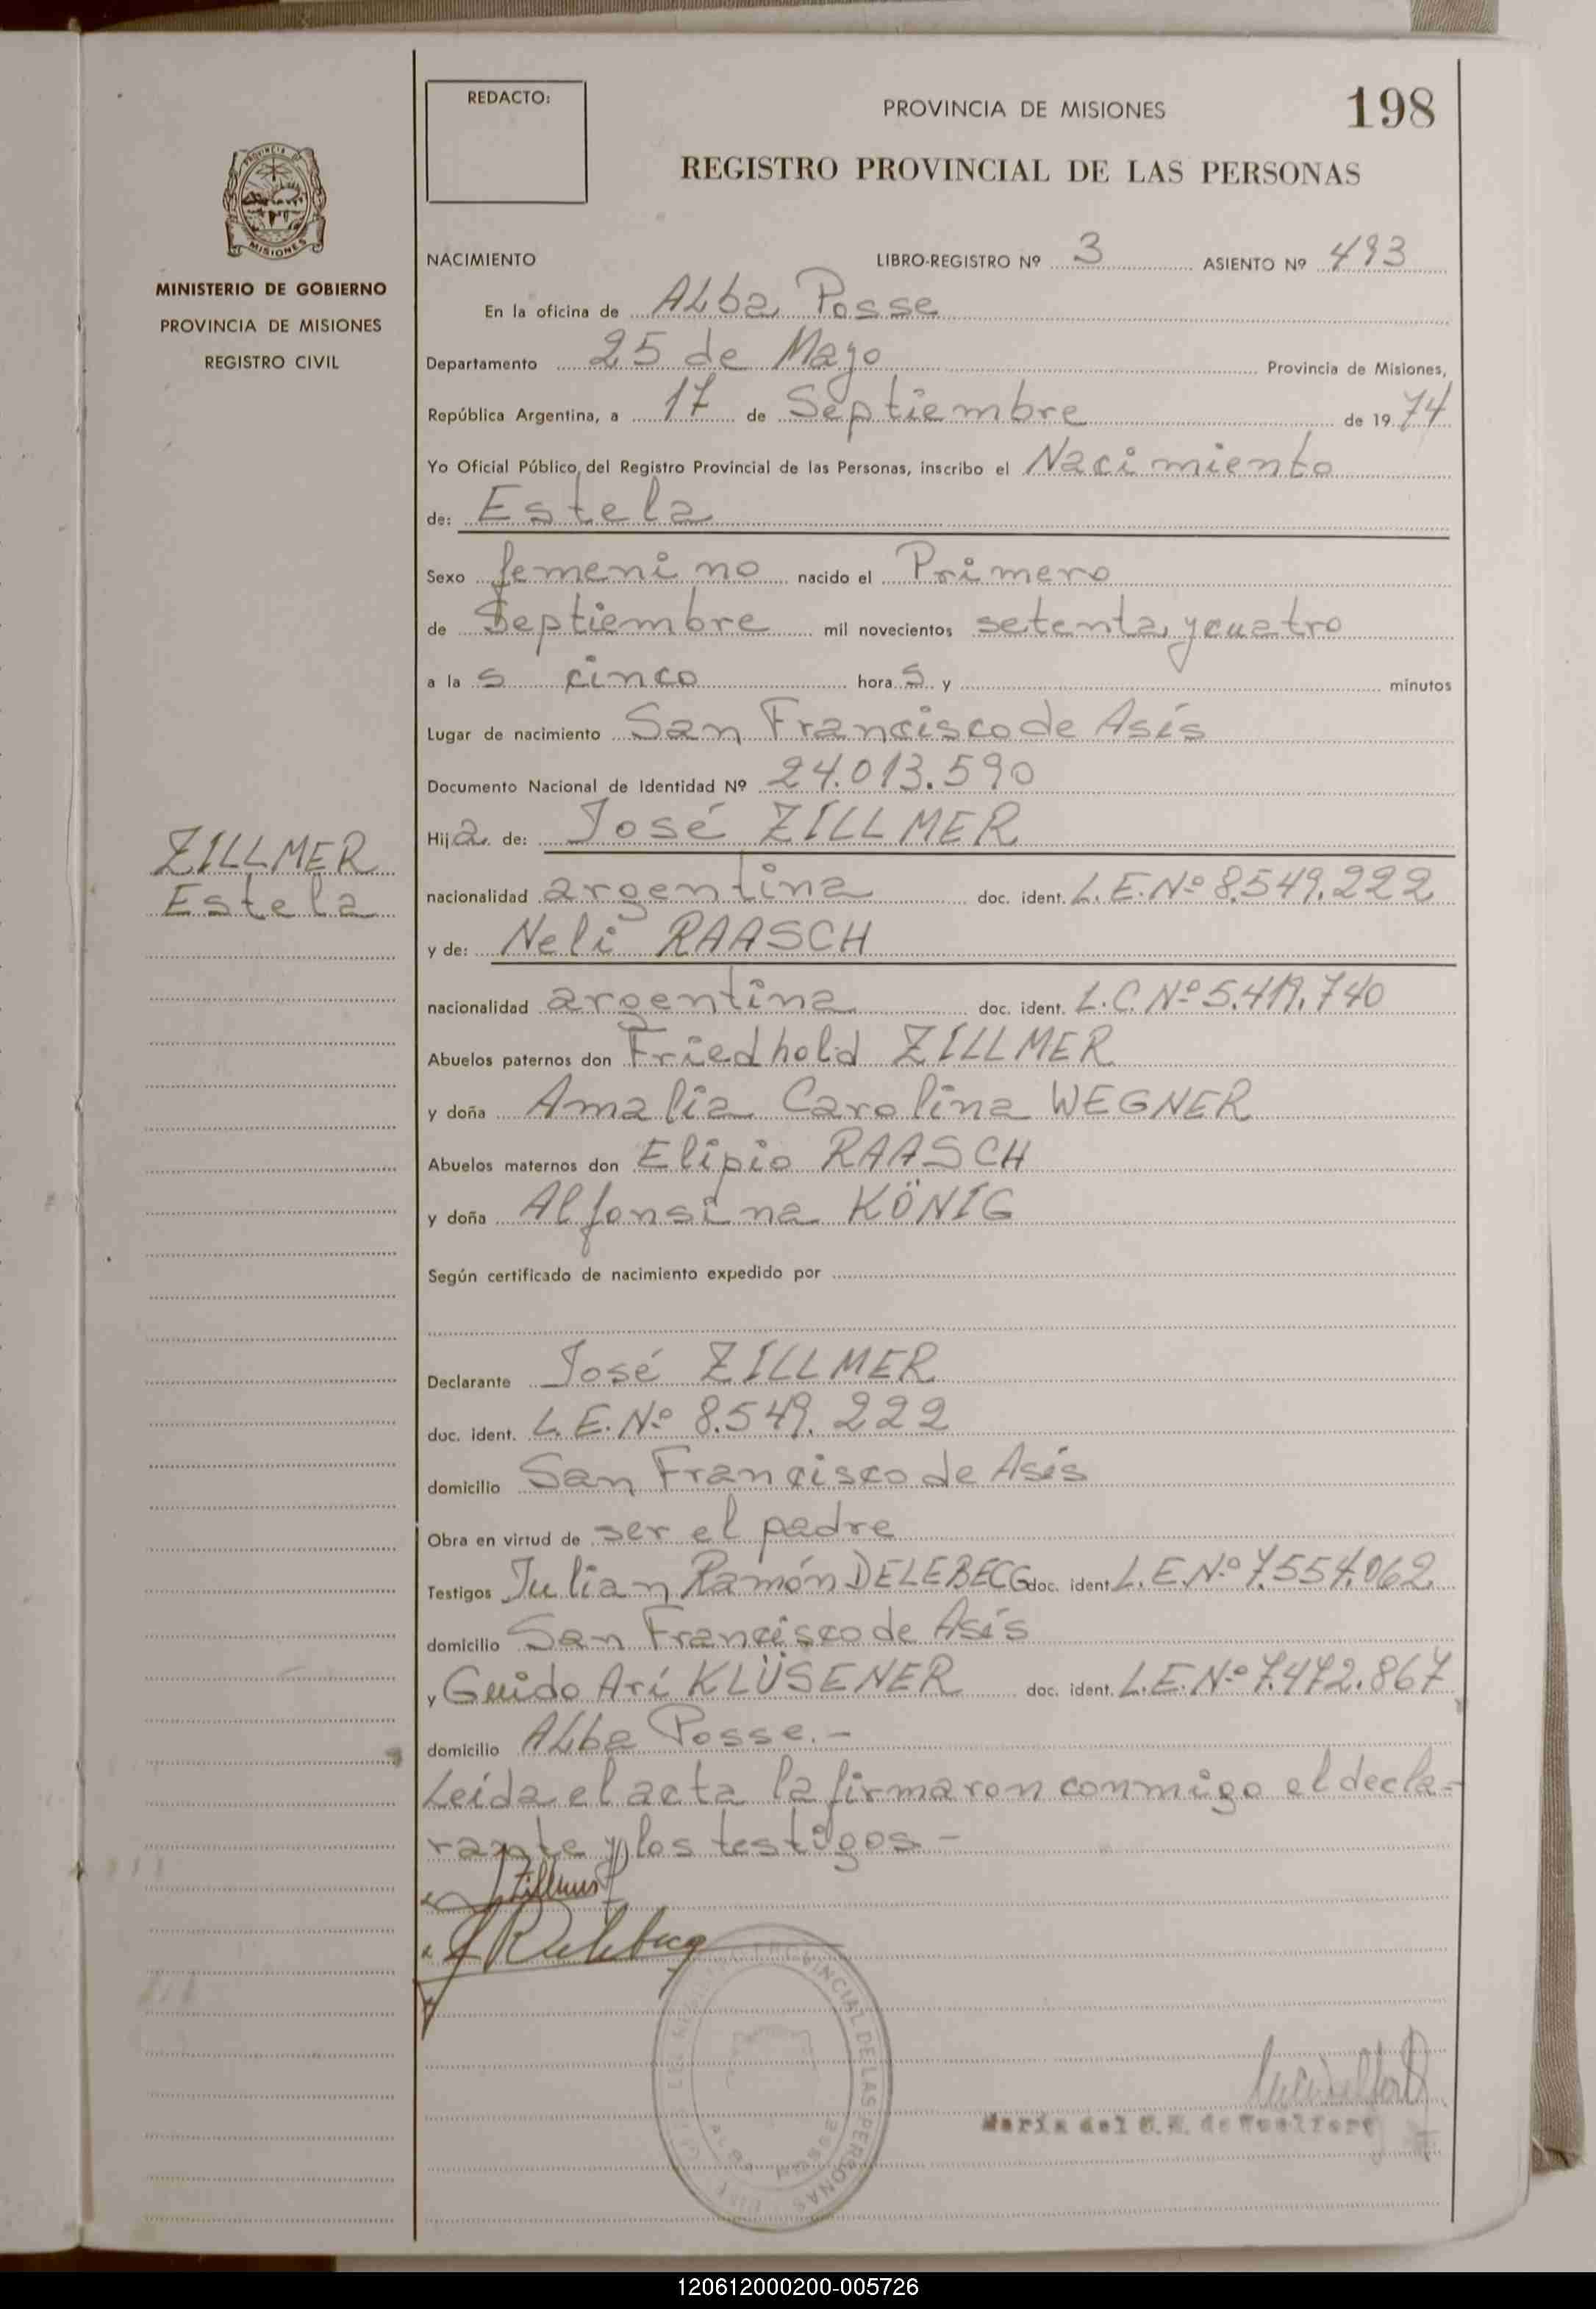 REDACTO:
PROVINCIA DE MISIONES
198
REGISTRO PROVINCIAL DE LAS PERSONAS
PROVINCIA DE
MISIONES
MINISTERIO DE GOBIERNO
PROVINCIA DE MISIONES
REGISTRO CIVIL
NACIMIENTO LIBRO-REGISTRO Nº 3 ASIENTO Nº 493
En la oficina de Alba Posse
Departamento 25 de Mayo Provincia de Misiones,
República Argentina, a 17 de Septiembre de 19 74
Yo Oficial Público, del Registro Provincial de las Personas, inscribo el Nacimiento
de: Estela
Sexo femenino nacido el Primero
de Septiembre mil novecientos setenta y cuatro
a la s cinco hora s y minutos
Lugar de nacimiento San Francisco de Asís
Documento Nacional de Identidad Nº 24.013.590
Hij a de: José ZILLMER
ZILLMER
Estela
nacionalidad argentina doc. ident. L.E.Nº 8.549.222
y de: Neli RAASCH
nacionalidad argentina doc. ident. L.C.Nº 5.419.740
Abuelos paternos don Friedhold ZILLMER
y doña Amalia Carolina WEGNER
Abuelos maternos don Elipio RAASCH
y doña Alfonsina KÖNIG
Según certificado de nacimiento expedido por
Declarante José ZILLMER
doc. ident. L.E.Nº 8.549.222
domicilio San Francisco de Asís
Obra en virtud de ser el padre
Testigos Julian Ramón DELEBECG doc. ident. L.E.Nº 7.554.062
domicilio San Francisco de Asís
y Guido Arí KLÜSENER doc. ident. L.E.Nº 7.472.867
domicilio Alba Posse.-
Leída el acta la firmaron conmigo el decla-
rante y los testigos.-
Zillmer
PROVINCIAL DE LAS PERSONAS
ALBA POSSE
María del
120612000200-005726